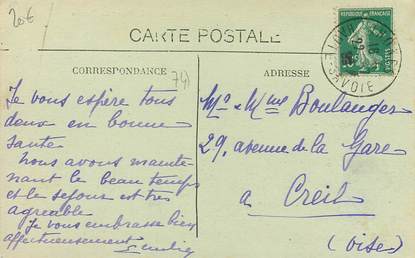 20€
CARTE POSTALE
CORRESPONDANCE
74)
ADRESSE
REPUBLIQUE FRANÇAISE
POSTES
SAVOIE
Je vous espère tous
deux en bonne
sante
nous avons mainte
nant le beau temps
et le sejour est très
agreable
Je vous embrasse bien
affectueusement
Mr & Mme Boulanger
29, avenue de la Gare
a Creil
(Oise)